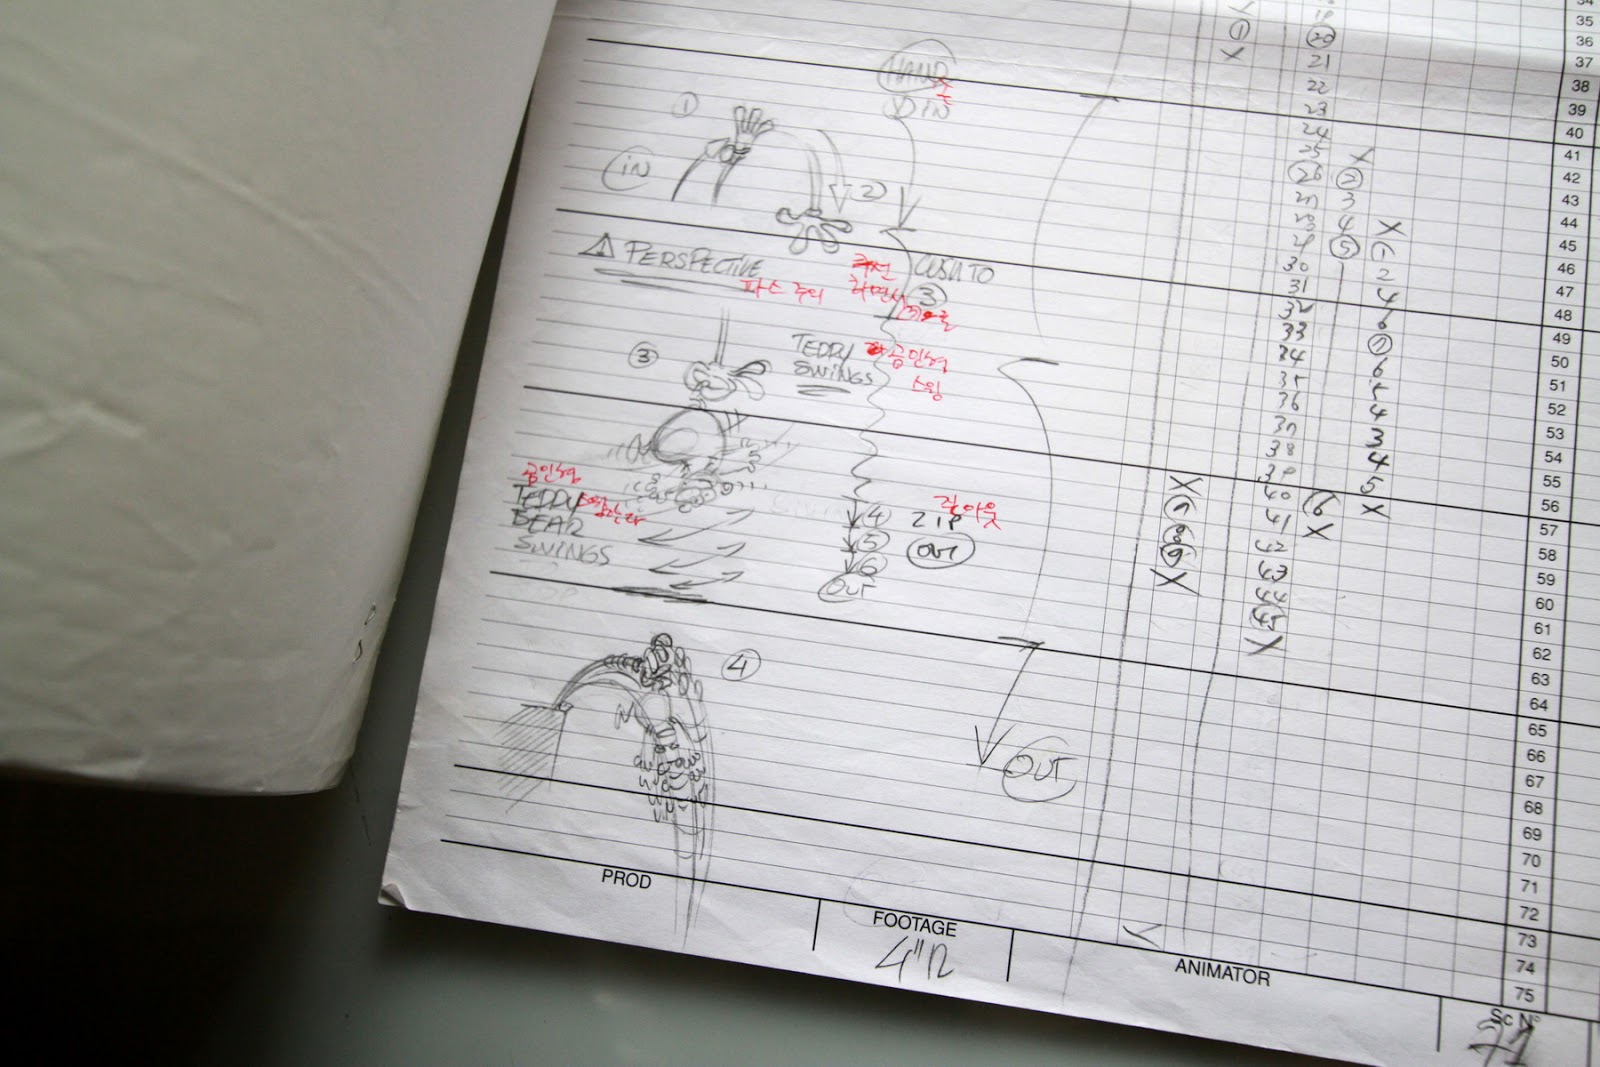 HAND
손
① IN
①
IN
2)
⚠ PERSPECTIVE
파스 주의
CUSH TO
③
③
TEDDY
SWINGS
곰인형
스윙
곰인형
TEDDY
BEAR
SWINGS
↓4
↓5
↓6
OUT
집아웃
ZIP
OUT
④
OUT
PROD
FOOTAGE
4"12
ANIMATOR
Sc Nº
71
① X
⑳
21
22
23
24
25
㉖
30
31
32
33
34
35
36
37
38
39
40
41
42
43
44
㊺
X
X
②
3
4
⑤
⑥
X
X
①
2
4
6
⑦
6
5
4
3
4
5
X
X
⑦
8
⑨
X
35
36
37
38
39
40
41
42
43
44
45
46
47
48
49
50
51
52
53
54
55
56
57
58
59
60
61
62
63
64
65
66
67
68
69
70
71
72
73
74
75